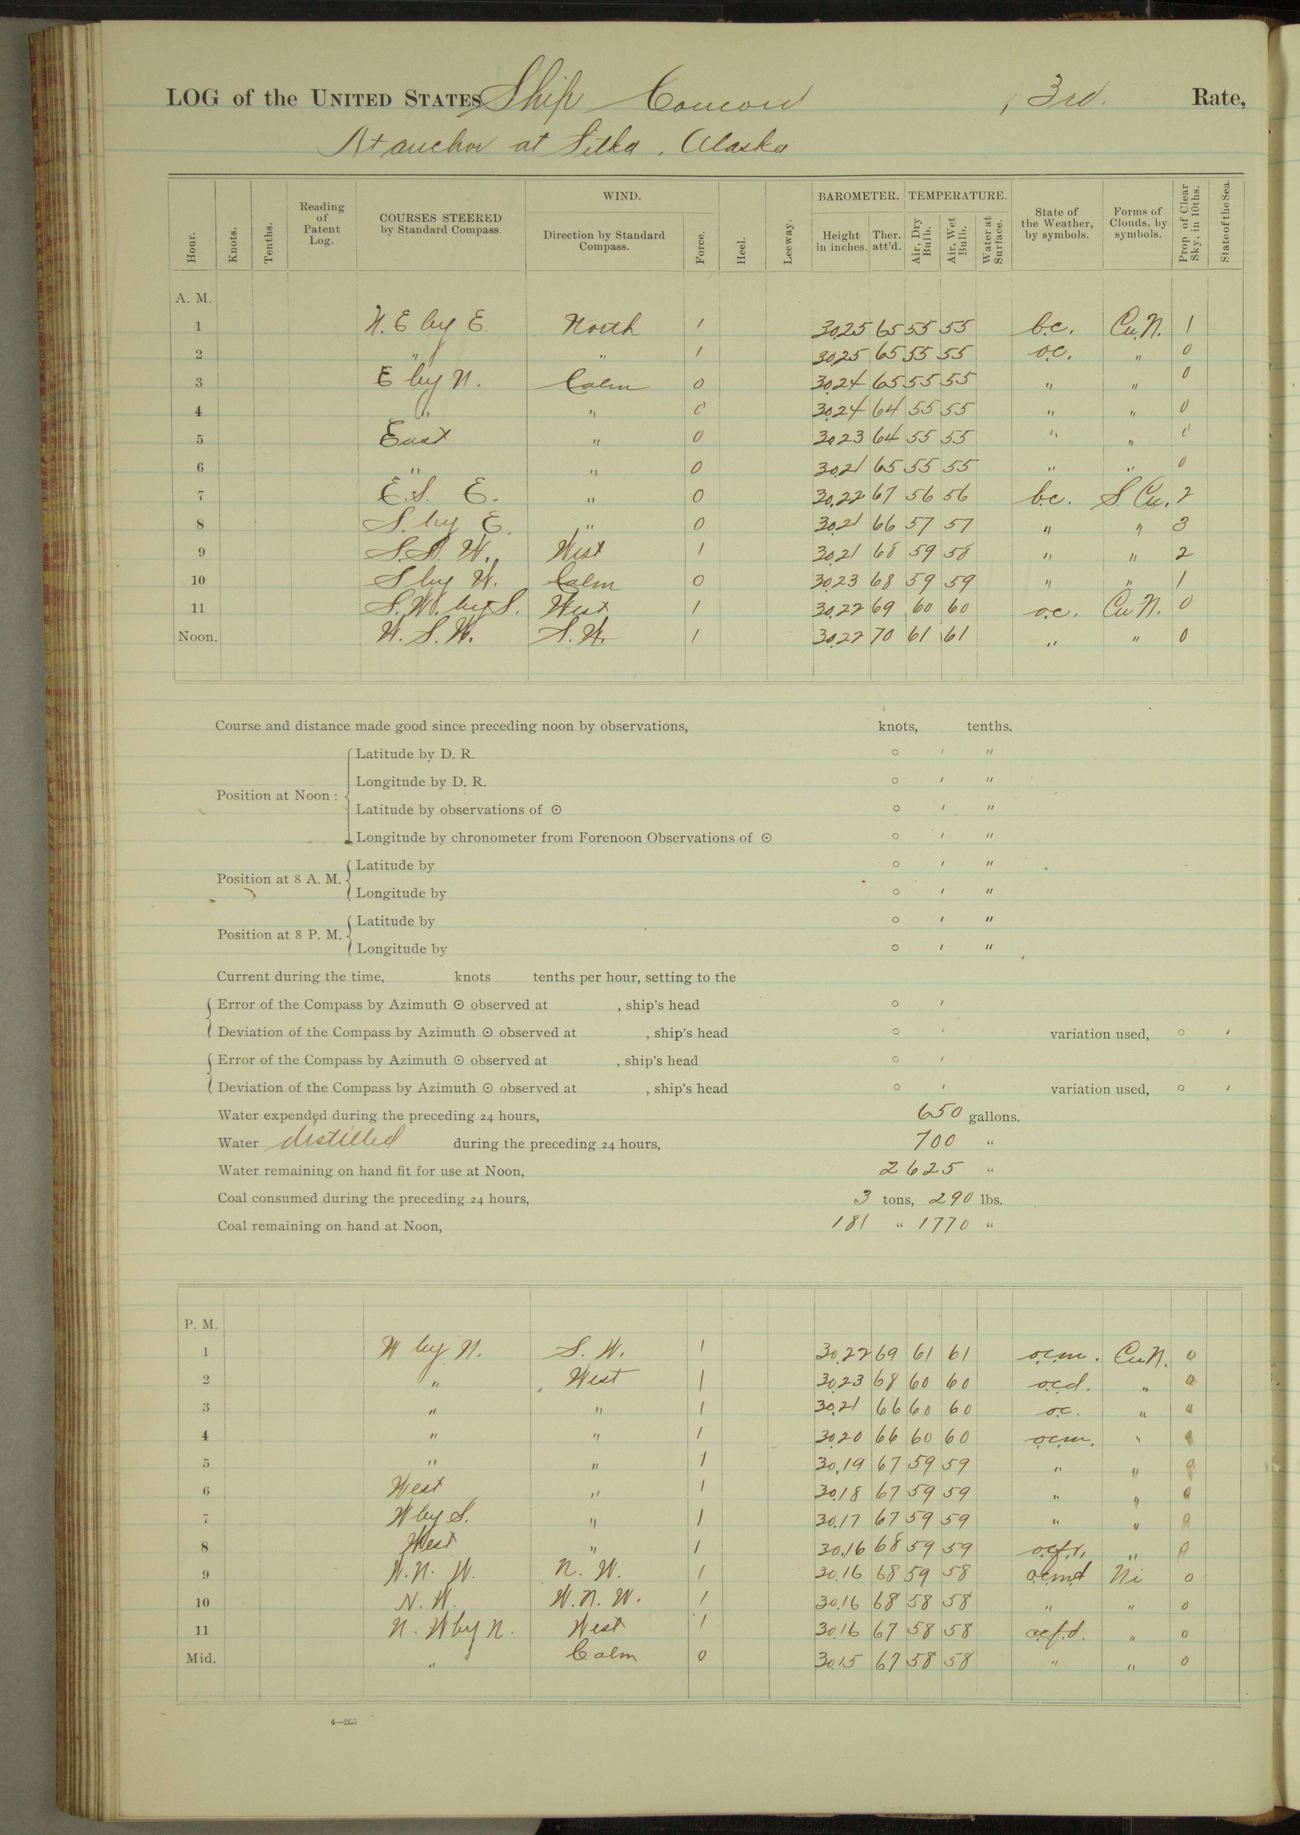 LOG of the UNITED STATES Ship Concord, 3rd. Rate,
At anchor at Sitka, Alaska
Hour. Knots. Tenths. Reading of Patent Log. COURSES STEERED by Standard Compass. WIND. Direction by Standard Compass. Force. Heel. Leeway. BAROMETER. Height in inches. Ther. att'd. TEMPERATURE. Air, Dry Bulb. Air, Wet Bulb. Water at Surface. State of the Weather, by symbols. Forms of Clouds, by symbols. Prop. of Clear Sky, in 10ths. State of the Sea.
A. M.
1 N. E by E. North 1 30.25 65 55 55 b.c. Cu.N. 1
2 " " 1 30.25 65 55 55 o.c. " 0
3 E by N. Calm 0 30.24 65 55 55 " " 0
4 " " 0 30.24 64 55 55 " " 0
5 East " 0 30.23 64 55 55 " " 0
6 " " 0 30.21 65 55 55 " " 0
7 E.S. E. " 0 30.22 67 56 56 b.c. S.Cu. 2
8 S. by E. " 0 30.21 66 57 57 " " 3
9 S.S. W. West 1 30.21 68 59 58 " " 2
10 S by W. Calm 0 30.23 68 59 59 " " 1
11 S.W. by S. West 1 30.22 69 60 60 o.c. Cu N. 0
Noon. W. S. W. S. W. 1 30.22 70 61 61 " " 0
Course and distance made good since preceding noon by observations, knots, tenths.
Position at Noon: Latitude by D. R. ° ′ ″
Longitude by D. R. ° ′ ″
Latitude by observations of ⊙ ° ′ ″
Longitude by chronometer from Forenoon Observations of ⊙ ° ′ ″
Position at 8 A. M. Latitude by ° ′ ″
Longitude by ° ′ ″
Position at 8 P. M. Latitude by ° ′ ″
Longitude by ° ′ ″
Current during the time, knots tenths per hour, setting to the
Error of the Compass by Azimuth ⊙ observed at , ship's head ° ′
Deviation of the Compass by Azimuth ⊙ observed at , ship's head ° ′ variation used, ° ′
Error of the Compass by Azimuth ⊙ observed at , ship's head ° ′
Deviation of the Compass by Azimuth ⊙ observed at , ship's head ° ′ variation used, ° ′
Water expended during the preceding 24 hours, 650 gallons.
Water distilled during the preceding 24 hours, 700 "
Water remaining on hand fit for use at Noon, 2625 "
Coal consumed during the preceding 24 hours, 3 tons, 290 lbs.
Coal remaining on hand at Noon, 181 " 1770 "
P. M.
1 W by N. S. W. 1 30.22 69 61 61 o.c.m. Cu N. 0
2 " West 1 30.23 68 60 60 o.c.d. " 0
3 " " 1 30.21 66 60 60 o.c. " 0
4 " " 1 30.20 66 60 60 o.c.m. " 0
5 " " 1 30.19 67 59 59 " " 0
6 West " 1 30.18 67 59 59 " " 0
7 W by S. " 1 30.17 67 59 59 " " 0
8 West " 1 30.16 68 59 59 o.c.f.r. " 0
9 W.N. W. N. W. 1 30.16 68 59 58 o.c.m.d Ni 0
10 N. W. W. N. W. 1 30.16 68 58 58 " " 0
11 N. W by N. West 1 30.16 67 58 58 o.c.f.d. " 0
Mid. " Calm 0 30.15 67 58 58 " " 0
4—265